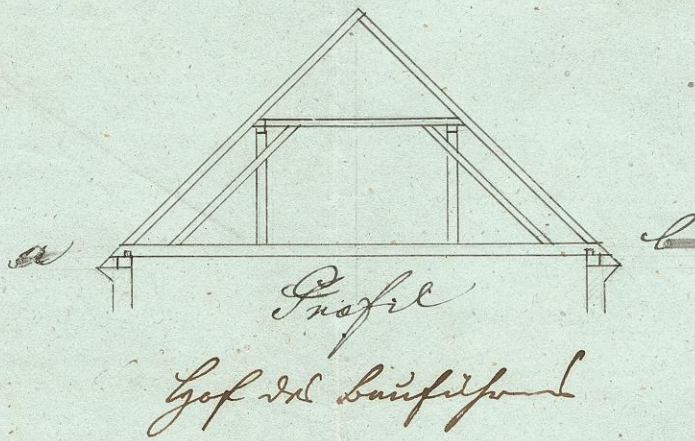 a b
Profil
Hof des Bauführers